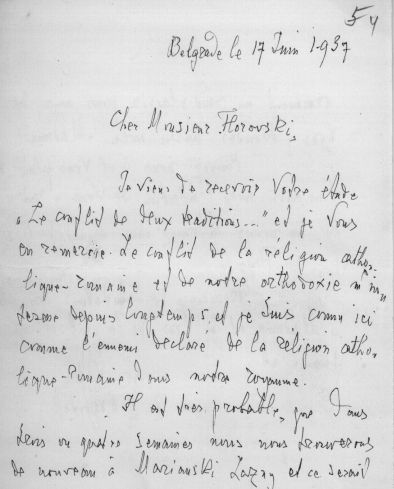 54
Belgrade le 17 Juin 1937
Cher Monsieur Florovski,
Je viens de recevoir Votre étude
"Le conflit de deux traditions..." et je Vous
en remercie. Le conflit de la réligion catho-
lique-romaine et de notre orthodoxie m'in-
teresse depuis longtemps, et je suis connu ici
comme l'ennemi declaré de la religion catho-
lique-romaine dans notre royaume.
Il est très probable, que dans
trois ou quatre semaines nous nous trouverons
de nouveau à Marianski Lazny et ce serait